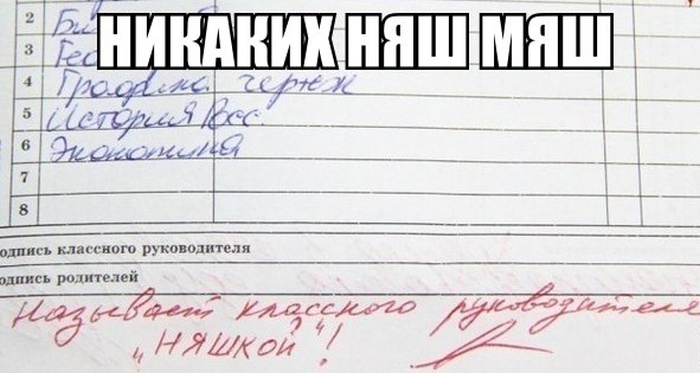 НИКАКИХ НЯШ МЯШ
2 Би
3 Гео
4 Графика черчеж
5 История Рос
6 Экономика
7
8
одпись классного руководителя
одпись родителей
Называет классного руководителя
„НЯШКОЙ“!